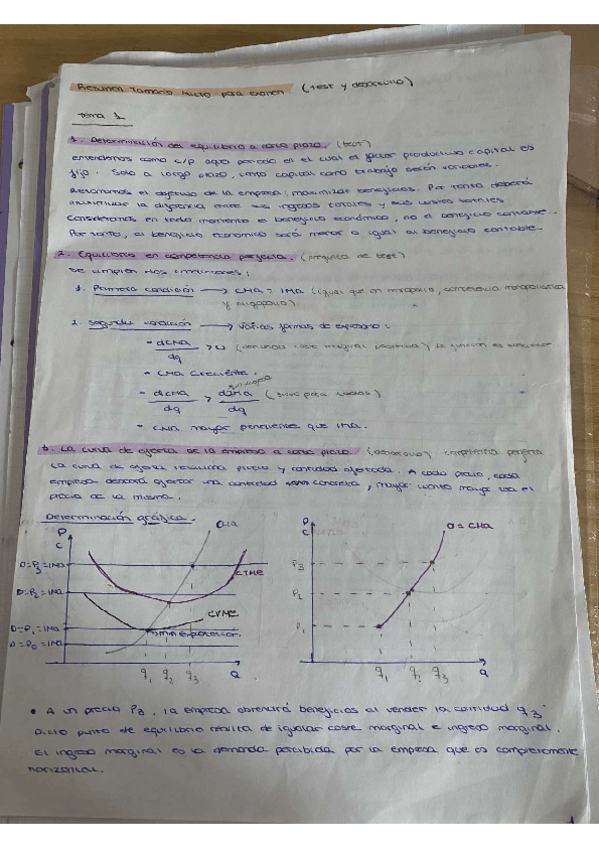 Resumen Temario Micro para examen (test y desarrollo)
Tema 1
1. Determinación del equilibrio a corto plazo. (test)
entendemos como c/p aquel periodo en el cual el factor productivo capital es
fijo. Solo a largo plazo, tanto capital como trabajo serán variables.
Retomamos el objetivo de la empresa; maximizar beneficios. Por tanto deberá
maximizar la diferencia entre sus ingresos totales y sus costes totales
Consideramos en todo momento el beneficio económico, no el beneficio contable.
Por tanto, el beneficio económico será menor o igual al beneficio contable.
2. Equilibrio en competencia perfecta. (pregunta de test)
Se cumplen dos condiciones:
1. Primera condición → CMA = IMA (igual que en monopolio, competencia monopolística
y oligopolio)
2. Segunda condición → varias formas de expresarlo:
- dCMA/dq > 0 (coste marginal) la función es
- CMA creciente.
- dCMA/dq > dIMA/dq (para todos)
- CMA mayor pendiente que IMA.
3. La curva de oferta de la empresa a corto plazo. (desarrollo) competencia perfecta
La curva de oferta relaciona precio y cantidad ofertada. A cada precio, cada
empresa deseará ofertar una cantidad concreta, mayor cuanto mayor sea el
precio de la misma.
Determinación gráfica.
P
C
CMA
D=P3=IMA
CTME
D=P2=IMA
CVME
D=P1=IMA
D=P0=IMA
q1 q2 q3 Q
P
C
O=CMA
P3
P2
P1
q1 q2 q3 Q
• A un precio P3, la empresa obtendrá beneficios al vender la cantidad q3.
Dicho punto de equilibrio resulta de igualar coste marginal e ingreso marginal.
El ingreso marginal es la demanda percibida por la empresa que es completamente
horizontal.
1